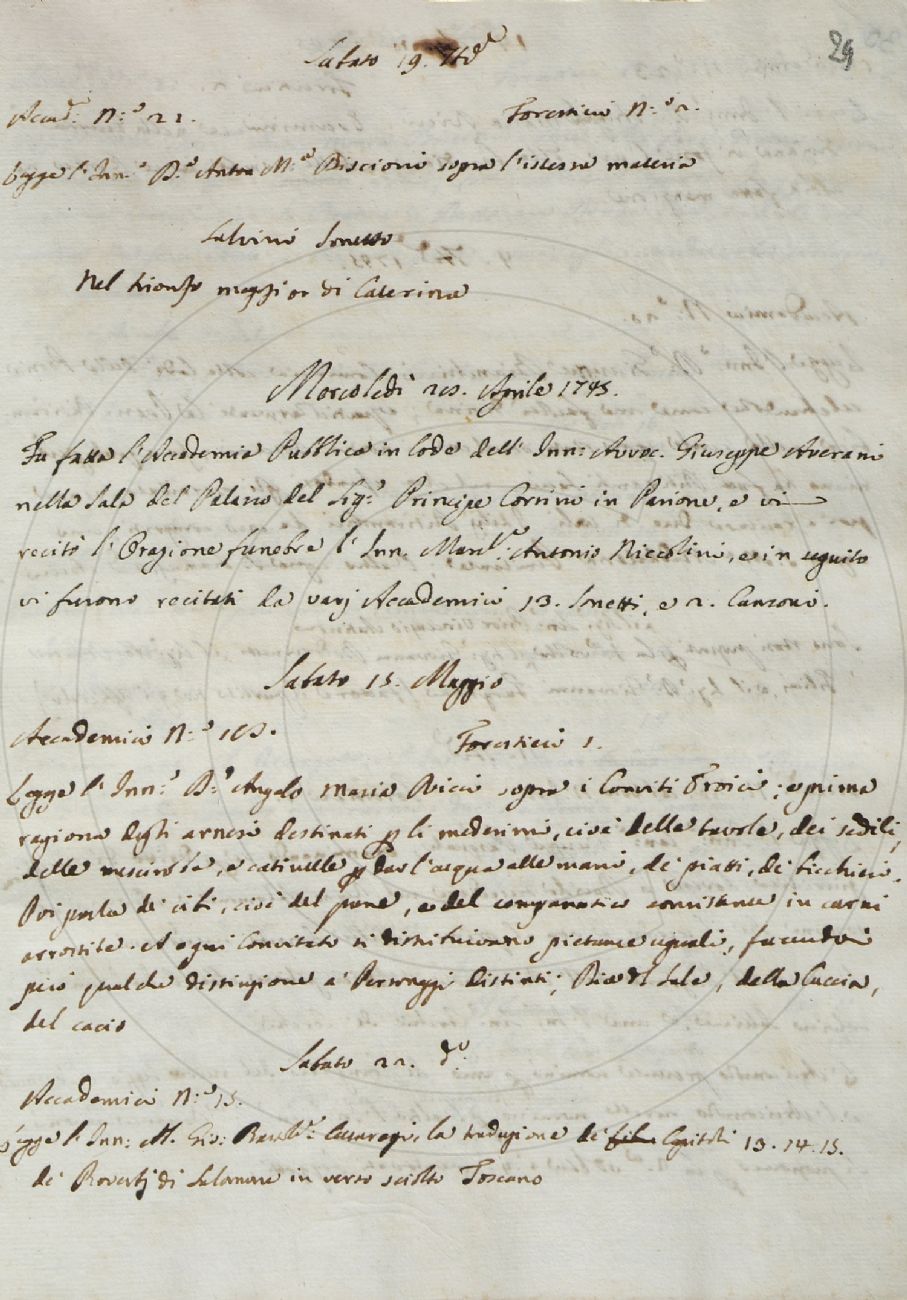 24
Sabato 19. Xbre
Accad.ci N:o 22. Forestieri N:o 2.
Legge l'Inn.o D.r Anton M.a Biscioni sopra l'istessa materia
Salvini Sonetto
Nel trionfo maggior di Caterina
Mercoledì 20. Aprile 1745.
Fu fatta l'Accademia Pubblica in lode dell'Inn: Avvoc. Giuseppe Averani
nella Sala del Palazzo del Sig.r Principe Corsini in Parione, e vi
recitò l'Orazione funebre l'Inn. March.e Antonio Niccolini, e in seguito
vi furono recitati da varj Accademici 13. Sonetti, e 2. Canzoni.
Sabato 15. Maggio
Accademici N:o Forestieri 1.
Legge l'Inn:o D.r Angelo Maria Ricci sopra i Conviti Eroici; e prima
ragiona degli arnesi destinati p li medesimi, cioè delle tavole, dei sedili,
delle e catinelle p dar l'acqua alle mani, de' piatti, de' bicchieri.
Poi parla de' cibi, cioè del pane, e del companatico consistente in carni
arrostite. A ogni Convitato si distribuivano pietanze uguali, facendosi
però qualche distinzione a' Personaggi distinti; Dice del Sale, della Caccia,
del cacio
Sabato 22. d.o
Accademici N:o 15.
Legge l'Inn: A. Gio: Casaregi, la traduzione de' Capitoli 13. 14. 15.
de' Proverbj di Salomone in verso sciolto Toscano